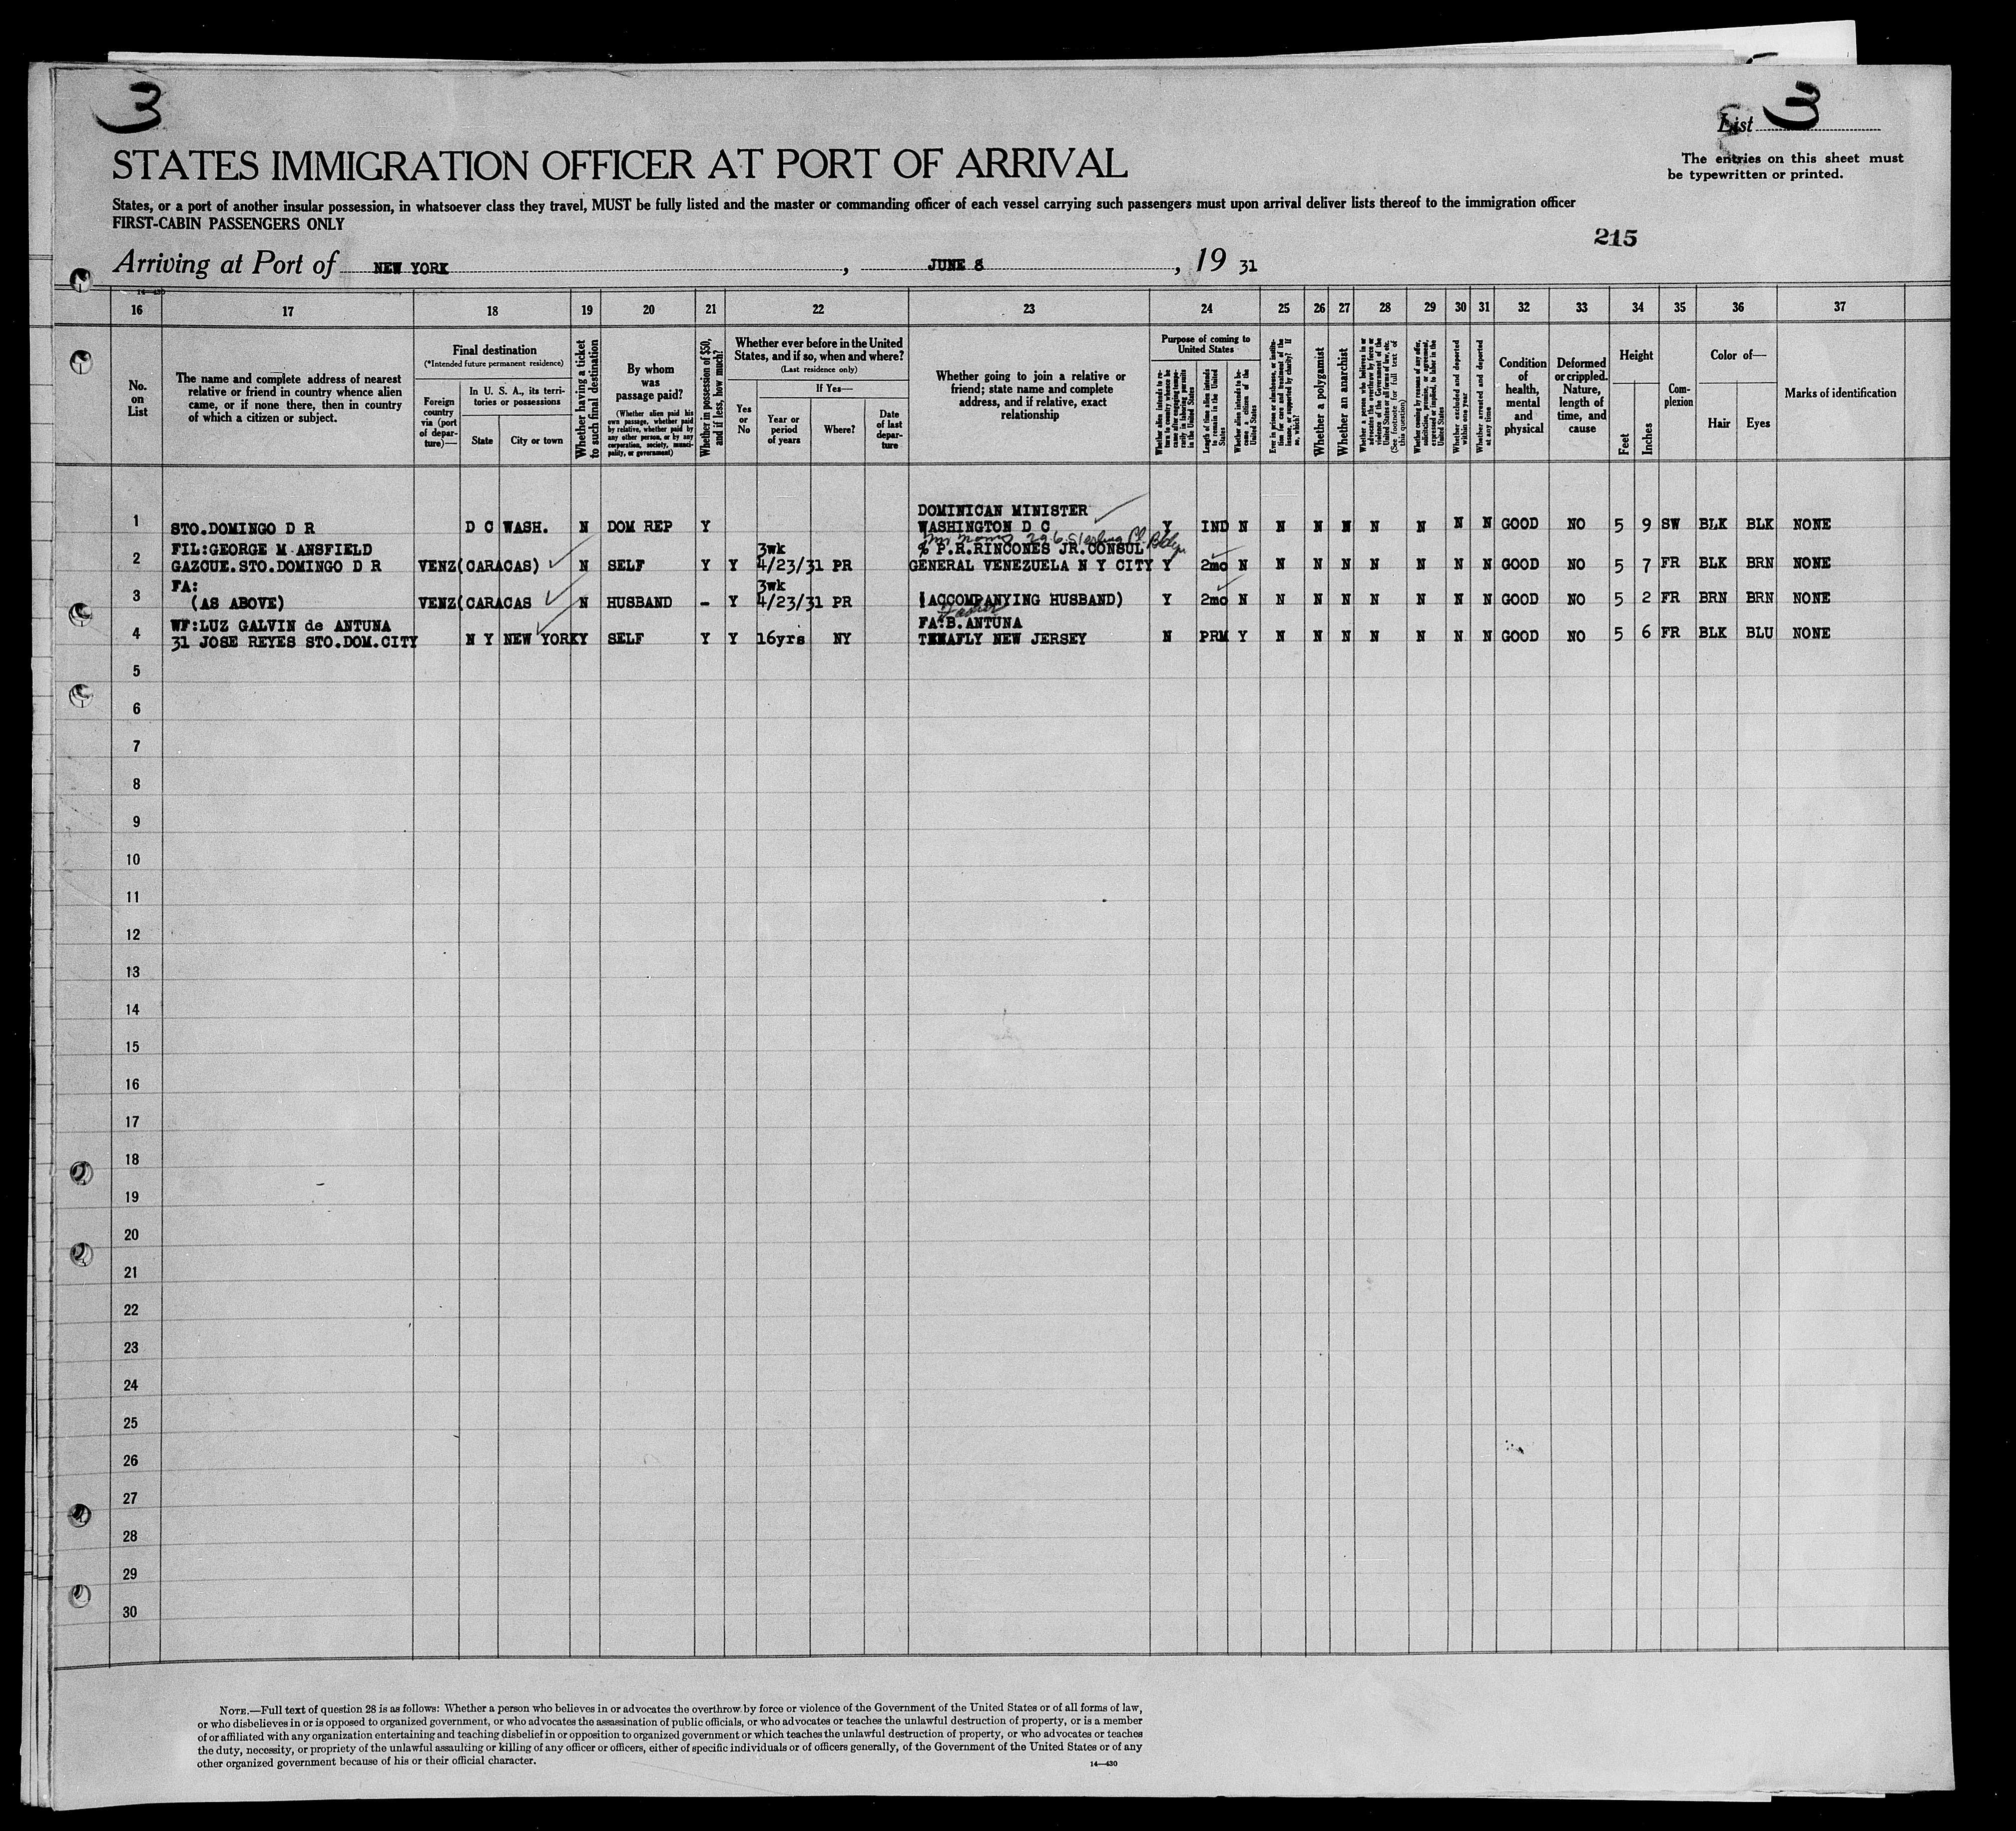 3
List 3
STATES IMMIGRATION OFFICER AT PORT OF ARRIVAL
The entries on this sheet must
be typewritten or printed.
States, or a port of another insular possession, in whatsoever class they travel, MUST be fully listed and the master or commanding officer of each vessel carrying such passengers must upon arrival deliver lists thereof to the immigration officer
FIRST-CABIN PASSENGERS ONLY
215
Arriving at Port of NEW YORK, JUNE 8, 19 31
14—430
16 17 18 19 20 21 22 23 24 25 26 27 28 29 30 31 32 33 34 35 36 37
No. on List
The name and complete address of nearest relative or friend in country whence alien came, or if none there, then in country of which a citizen or subject.
Final destination
(*Intended future permanent residence)
Foreign country via (port of departure)—
In U. S. A., its territories or possessions
State
City or town
Whether having a ticket to such final destination
By whom was passage paid?
(Whether alien paid his own passage, whether paid by relative, whether paid by any other person, or by any corporation, society, municipality, or government)
Whether in possession of $50, and if less, how much?
Whether ever before in the United States, and if so, when and where?
(Last residence only)
Yes or No
If Yes—
Year or period of years
Where?
Date of last departure
Whether going to join a relative or friend; state name and complete address, and if relative, exact relationship
Purpose of coming to United States
Whether alien intends to return to country whence he came after engaging temporarily in laboring pursuits in the United States
Length of time alien intends to remain in the United States
Whether alien intends to become a citizen of the United States
Ever in prison or almshouse, or institution for care and treatment of the insane, or supported by charity? If so, which?
Whether a polygamist
Whether an anarchist
Whether a person who believes in or advocates the overthrow by force or violence of the Government of the United States or all forms of law, etc. (See footnote for full text of this question)
Whether coming by reason of any offer, solicitation, promise, or agreement, expressed or implied, to labor in the United States
Whether excluded and deported within one year
Whether arrested and deported at any time
Condition of health, mental and physical
Deformed or crippled. Nature, length of time, and cause
Height
Feet
Inches
Complexion
Color of—
Hair
Eyes
Marks of identification
DOMINICAN MINISTER
1 STO.DOMINGO D R D C WASH. N DOM REP Y WASHINGTON D C Y IND N N N N N N N N GOOD NO 5 9 SW BLK BLK NONE
296 Sterling Pl. Bklyn
FIL:GEORGE M ANSFIELD 3wk % P.R.RINCONES JR.CONSUL
2 GAZCUE.STO.DOMINGO D R VENZ(CARACAS) N SELF Y Y 4/23/31 PR GENERAL VENEZUELA N Y CITY Y 2mo N N N N N N N N GOOD NO 5 7 FR BLK BRN NONE
FA: 3wk
3 (AS ABOVE) VENZ(CARACAS N HUSBAND - Y 4/23/31 PR (ACCOMPANYING HUSBAND) Y 2mo N N N N N N N N GOOD NO 5 2 FR BRN BRN NONE
Father
WF:LUZ GALVIN de ANTUNA FA:B.ANTUNA
4 31 JOSE REYES STO.DOM.CITY N Y NEW YORK Y SELF Y Y 16yrs NY TENAFLY NEW JERSEY N PRM Y N N N N N N N GOOD NO 5 6 FR BLK BLU NONE
5
6
7
8
9
10
11
12
13
14
15
16
17
18
19
20
21
22
23
24
25
26
27
28
29
30
NOTE.—Full text of question 28 is as follows: Whether a person who believes in or advocates the overthrow by force or violence of the Government of the United States or of all forms of law,
or who disbelieves in or is opposed to organized government, or who advocates the assassination of public officials, or who advocates or teaches the unlawful destruction of property, or is a member
of or affiliated with any organization entertaining and teaching disbelief in or opposition to organized government or which teaches the unlawful destruction of property, or who advocates or teaches
the duty, necessity, or propriety of the unlawful assaulting or killing of any officer or officers, either of specific individuals or of officers generally, of the Government of the United States or of any
other organized government because of his or their official character.
14—430